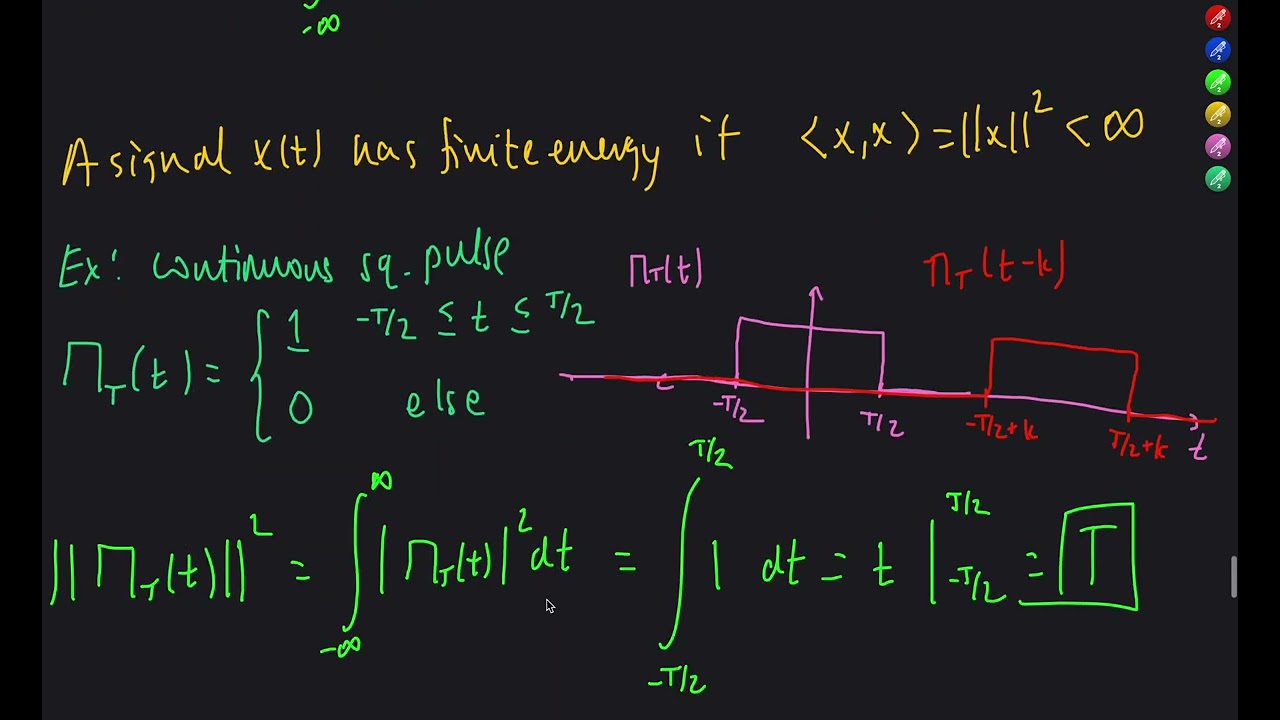 -∞
A signal x(t) has finite energy if <x,x> = ||x||² < ∞
Ex: continuous sq. pulse
Π_T(t) = { 1 -T/2 ≤ t ≤ T/2
0 else
Π_T(t)
Π_T(t-k)
-T/2 T/2 -T/2+k T/2+k t
||Π_T(t)||² = ∫_{-∞}^{∞} |Π_T(t)|² dt = ∫_{-T/2}^{T/2} 1 dt = t |_{-T/2}^{T/2} = T
2
2
2
2
2
2